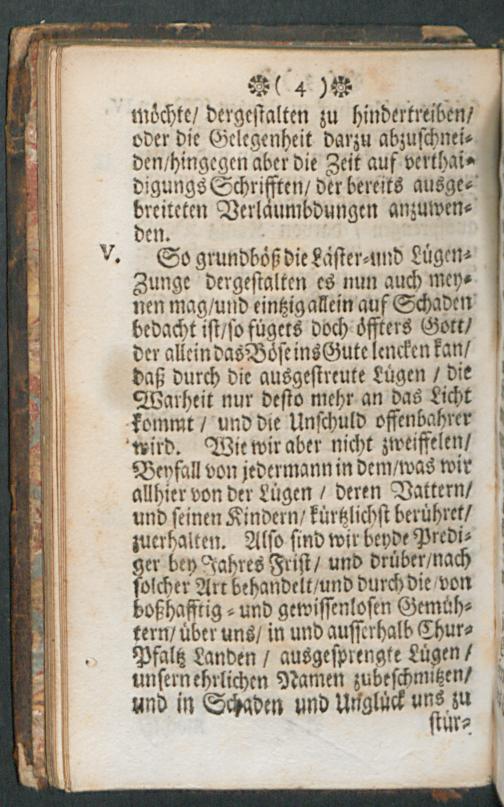 ( 4 )
möchte/ dergestalten zu hindertreiben/
oder die Gelegenheit darzu abzuschnei-
den/hingegen aber die Zeit auf verthai-
digungs Schrifften/ der bereits ausge-
breiteten Verläumbdungen anzuwen-
den.
V. So grundböß die Läster-und Lügen-
Zunge dergestalten es nun auch mey-
nen mag/und eintzig allein auf Schaden
bedacht ist/so fügets doch öffters Gott/
der allein das Böse ins Gute lencken kan/
daß durch die ausgestreute Lügen / die
Warheit nur desto mehr an das Licht
kommt / und die Unschuld offenbahrer
wird. Wie wir aber nicht zweiffelen/
Beyfall von jedermann in dem/was wir
allhier von der Lügen / deren Vattern/
und seinen Kindern/ kürtzlichst berühret/
zuerhalten. Also sind wir beyde Predi-
ger bey Jahres Frist/ und drüber/nach
solcher Art behandelt/und durch die/von
boßhafftig - und gewissenlosen Gemüh-
tern/ über uns/ in und ausserhalb Chur-
Pfaltz Landen / ausgesprengte Lügen /
unsern ehrlichen Namen zubeschmitzen/
und in Schaden und Unglück uns zu
stür-